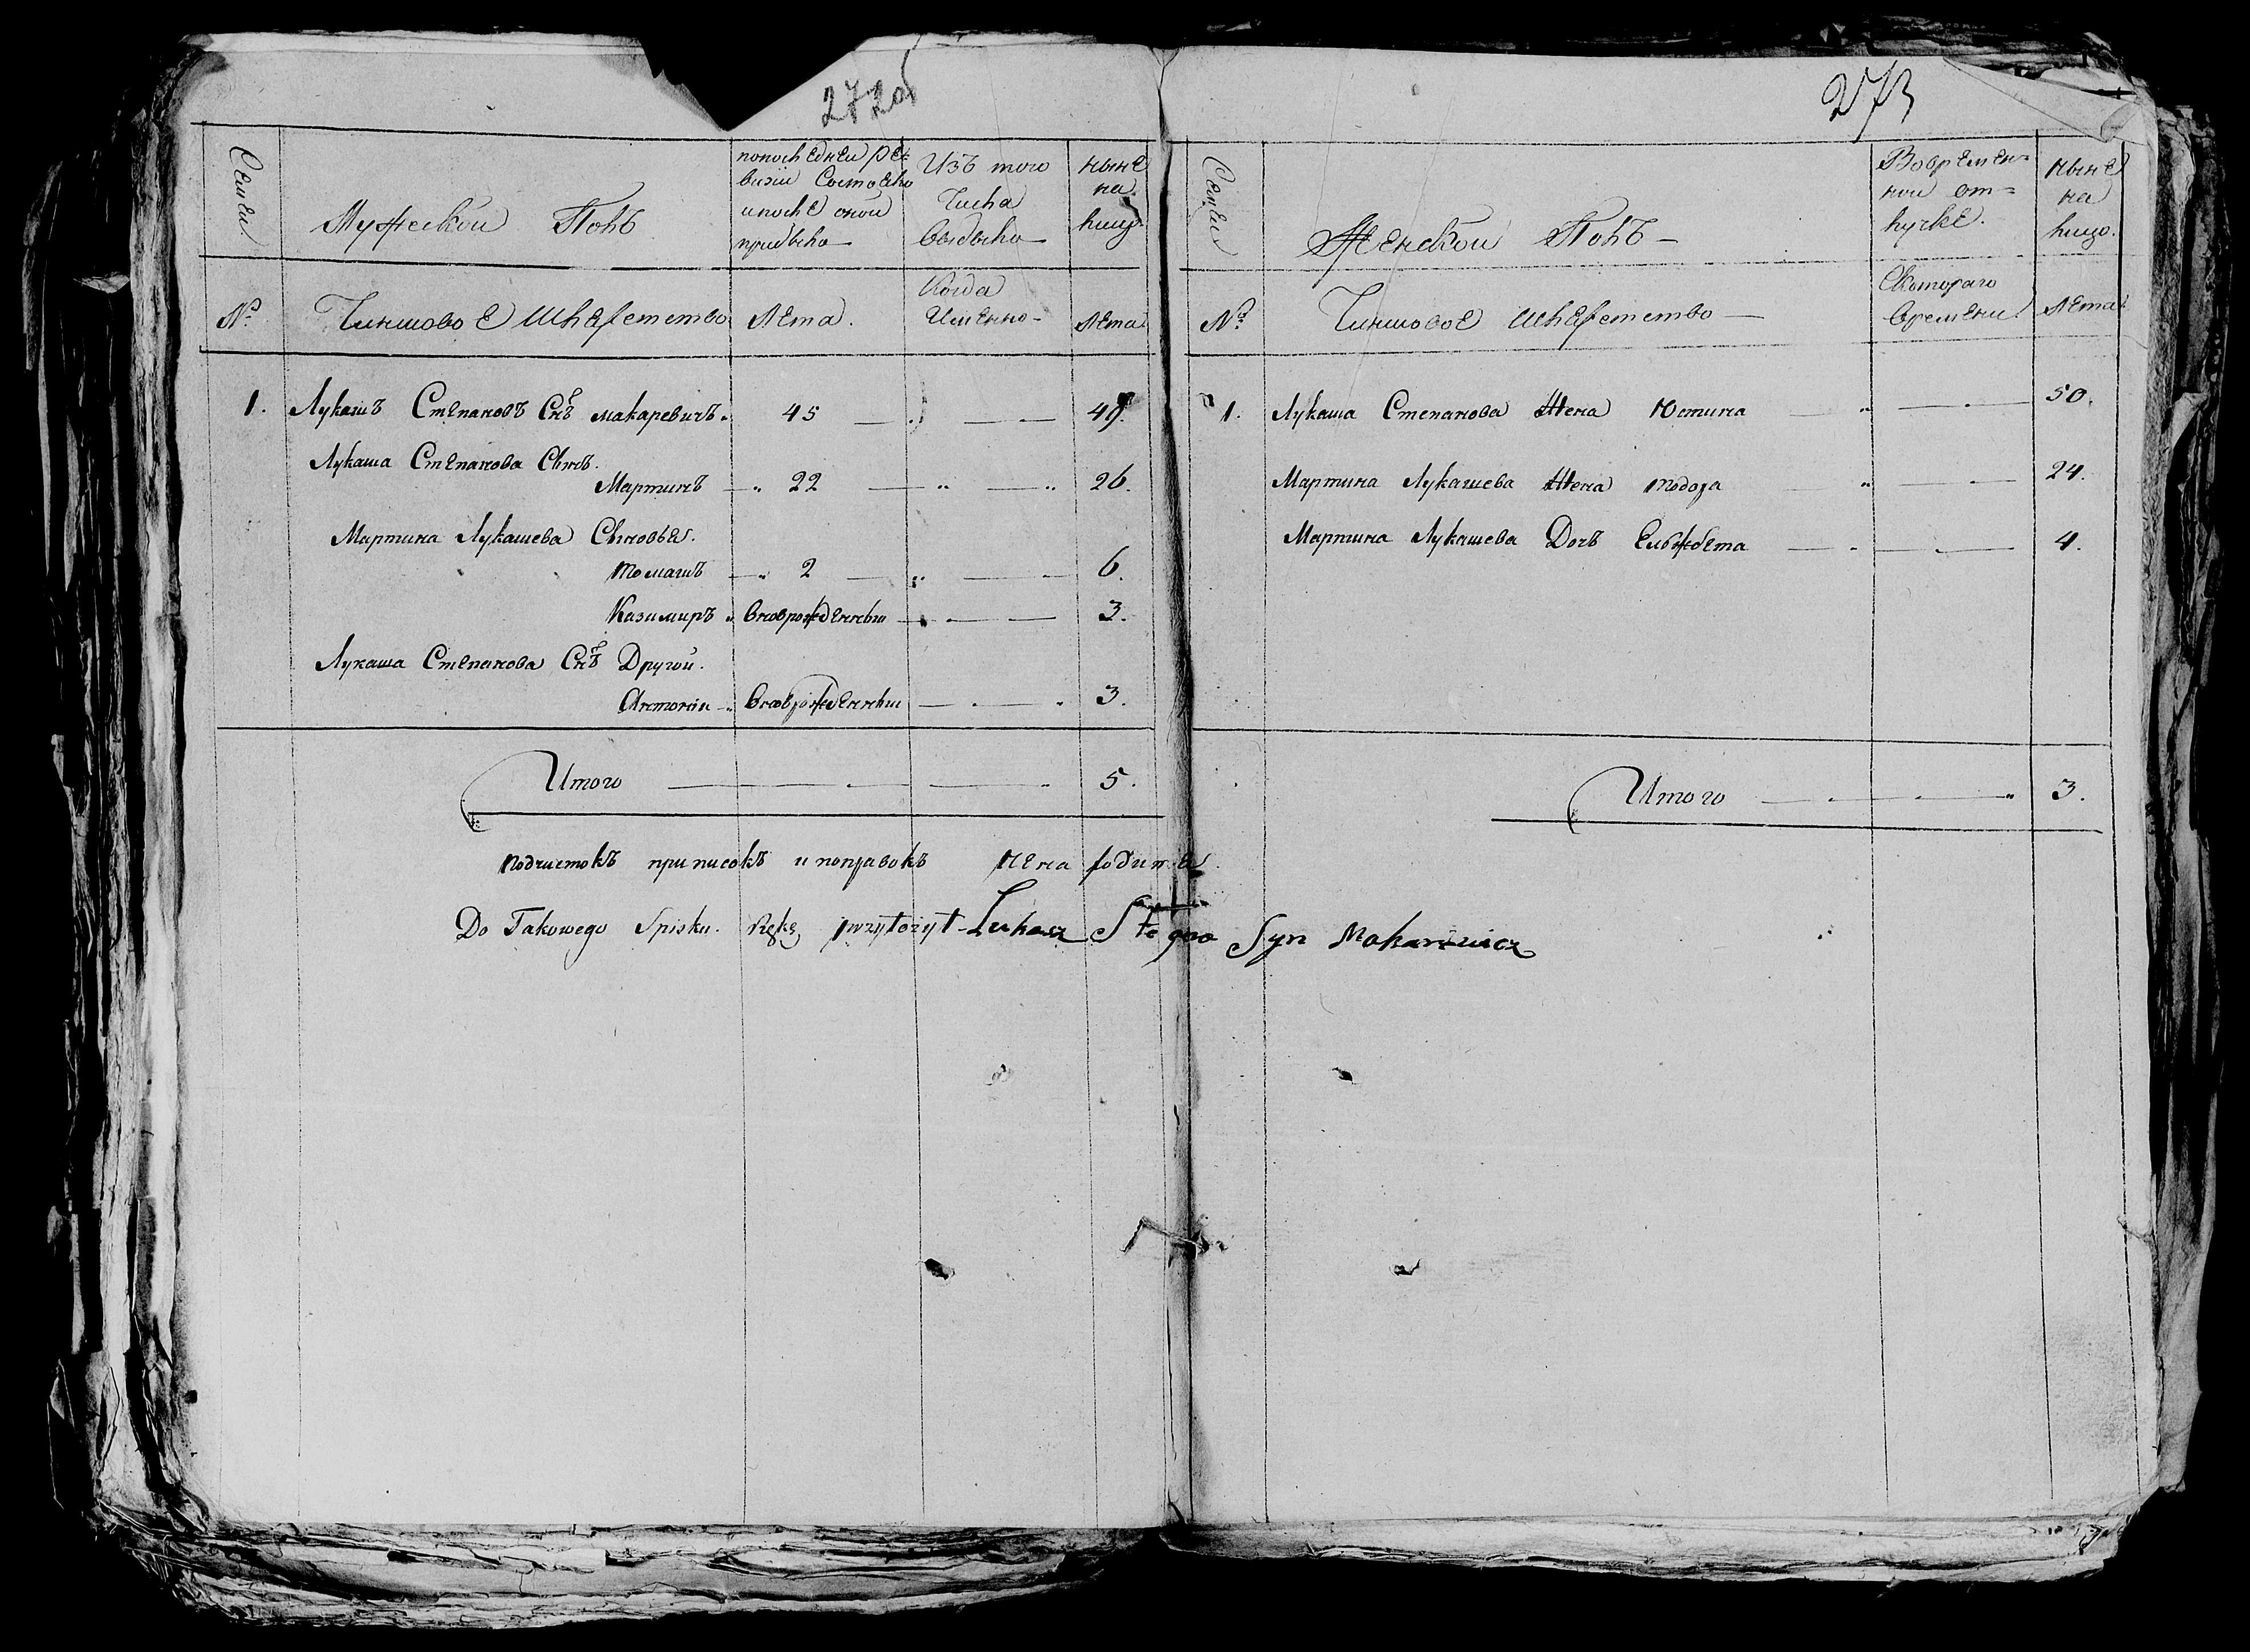 272об
Семьи
Мужескои Полъ
попоследнеи ре-
визіи Состояло
ипосле оной
прибыло
Изъ того
Числа
выбыло
ныне
на
лицо
№
Чиншовое шляхетство
Лета.
Когда
Именно-
Лета
1. Лукашъ Степановъ Снъ макаревичъ. 45 49.
Лукаша Степанова Сынъ.
Мартинъ 22 26.
Мартина Лукашева Сыновья.
томашъ 2 6.
Казимиръ вноврожденны 3.
Лукаша Степанова Снъ Другой.
Антони вноврожденны 3.
Итого 5.
подчистокъ приписокъ и поправокъ
Do Takowego Spisku. Rękę przyłożył Łukasz Syn Makarewicz
273
Семьи
Женской Полъ -
Вовремен=
нои от=
лучке.
ныне
на
лицо.
№
Чиншовое шляхетство
Скотораго
времени
Лета
1. Лукаша Степанова Жена Юстина 50.
Мартина Лукашева Жена тодора 24.
Мартина Лукашева Дочъ Ельжбета 4.
Итого 3.